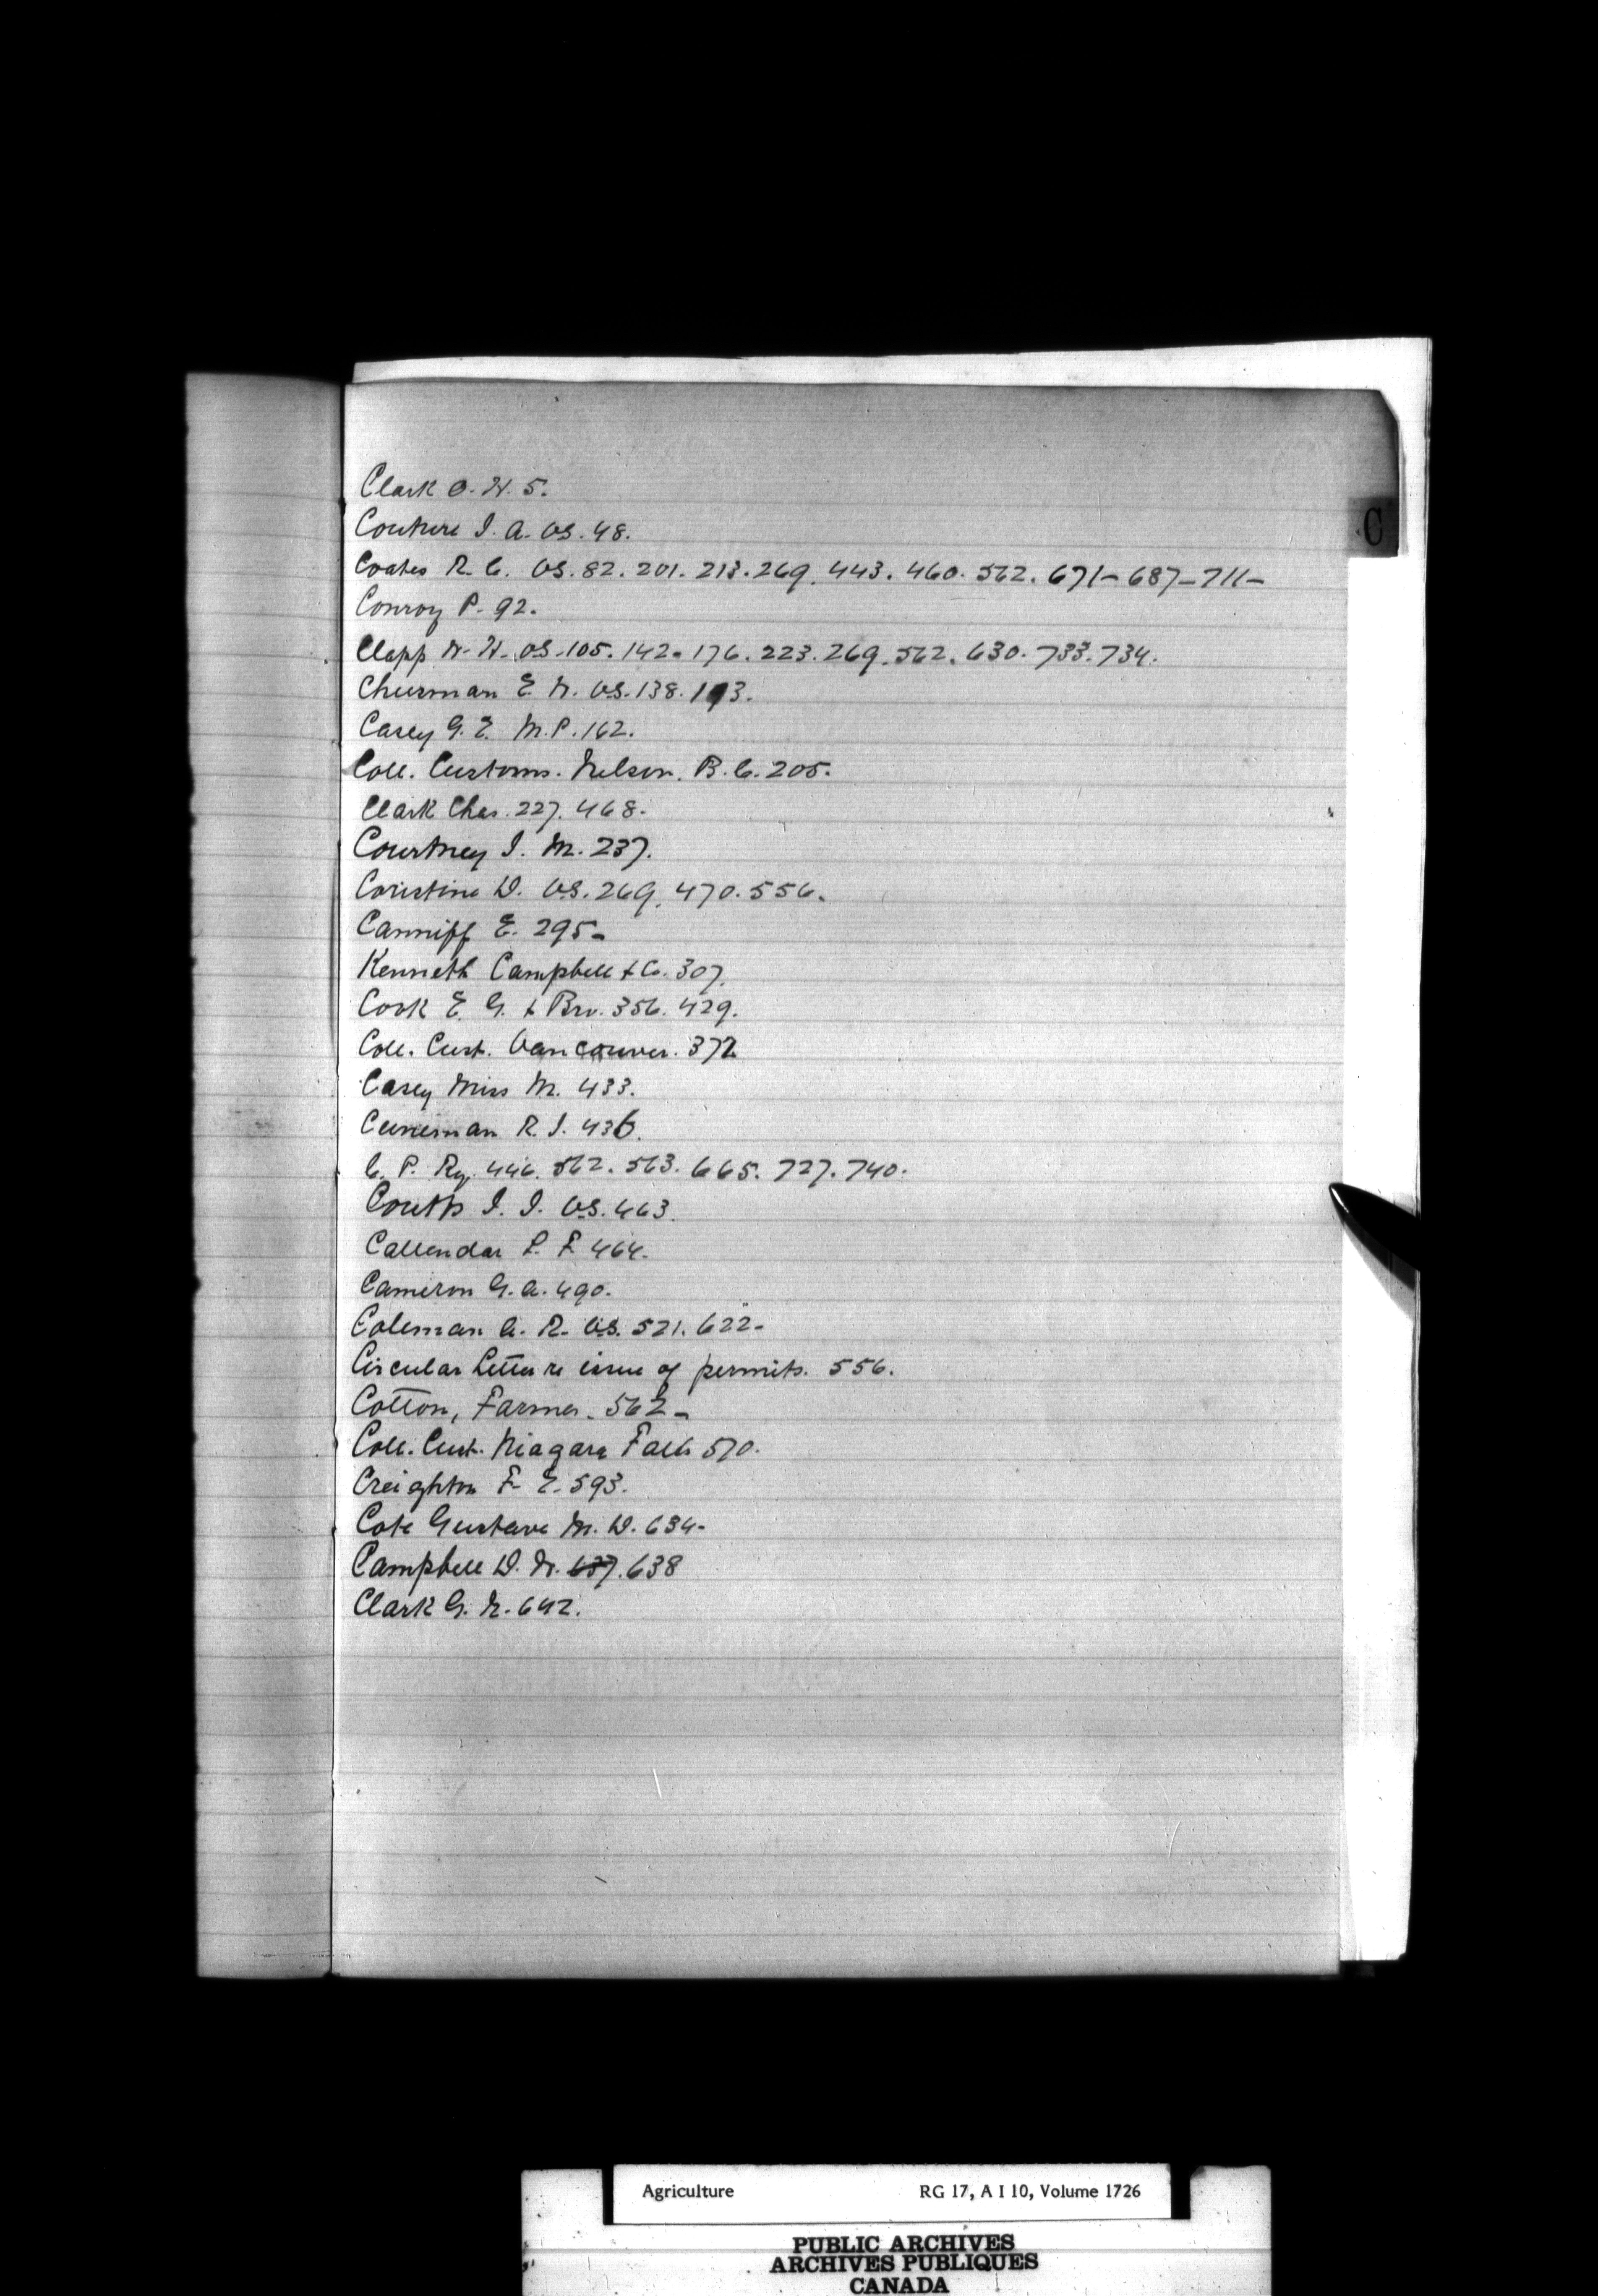 C
Clark O. H. 5.
Couture J. A. VS. 48.
Coates R. C. VS. 82. 201. 213. 269. 443. 460. 562. 671- 687- 711-
Conroy P. 92.
Clapp W. H. VS. 105. 142. 176. 223. 269. 562. 630. 733. 734.
Churman E. N. VS. 138. 193.
Casey G. E. M.P. 162.
Coll. Customs. Nelson. B.C. 205.
Clark Chas. 227. 468.
Courtney J. M. 237.
Coristine D. VS. 269. 470. 556.
Canniff E. 295-
Kenneth Campbell & Co. 307.
Cook E. G. & Bro. 356. 429.
Coll. Cust. Vancouver. 372
Casey Miss M. 433.
R. J. 436.
C. P. Ry. 446. 562. 563. 665. 727. 740.
Coutts J. J. VS. 463.
Callendar L. F. 464.
Cameron G. A. 490.
Coleman C. R. VS. 521. 622-
Circular Letter re issue of permits. 556.
Cotton, Farmer. 562-
Coll. Cust. Niagara Falls 570.
Creighton F. E. 593.
Cote Gustave M. D. 634-
Campbell D. N. 637. 638
Clark G. N. 642.
Agriculture RG 17, A I 10, Volume 1726
PUBLIC ARCHIVES
ARCHIVES PUBLIQUES
CANADA